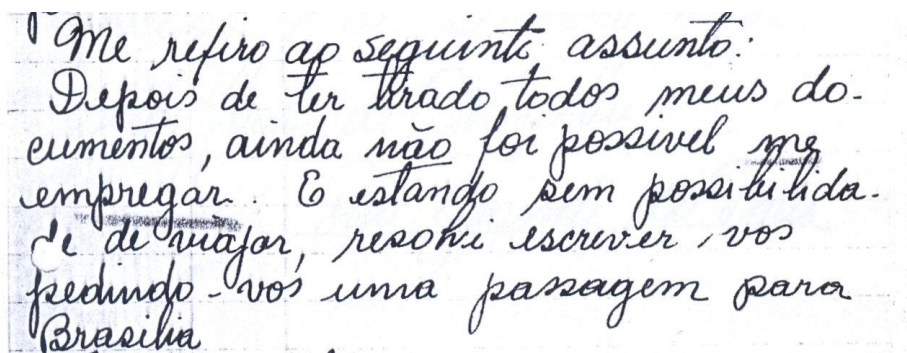 Me refiro ao seguinte assunto:
Depois de ter tirado todos meus do-
cumentos, ainda não foi possivel me
empregar. E estando sem possibilida-
de de viajar, resolvi escrever-vos
pedindo-vos uma passagem para
Brasilia